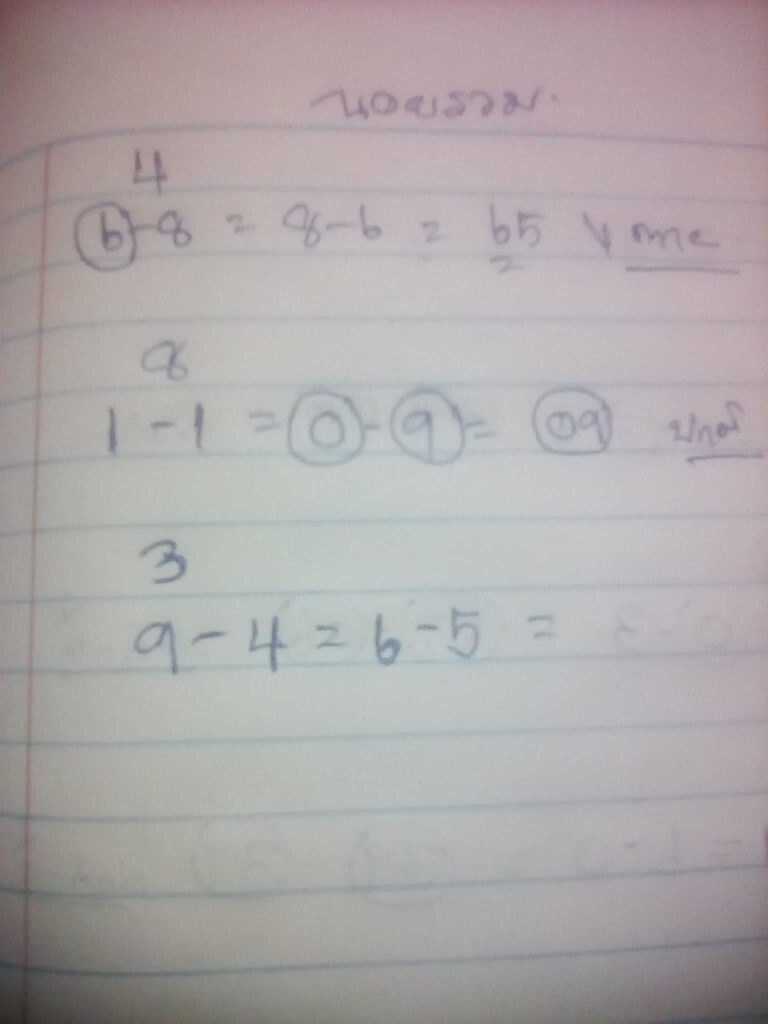 นอยรวม.
4
6-8 = 8-6 = 65
8
1-1 = 0-9 = 09 ปกติ
3
9-4 = 6-5 =